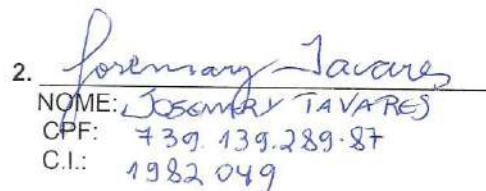 2. Josemary Tavares
NOME: JOSEMARY TAVARES
CPF: 739.139.289-87
C.I.: 1982049